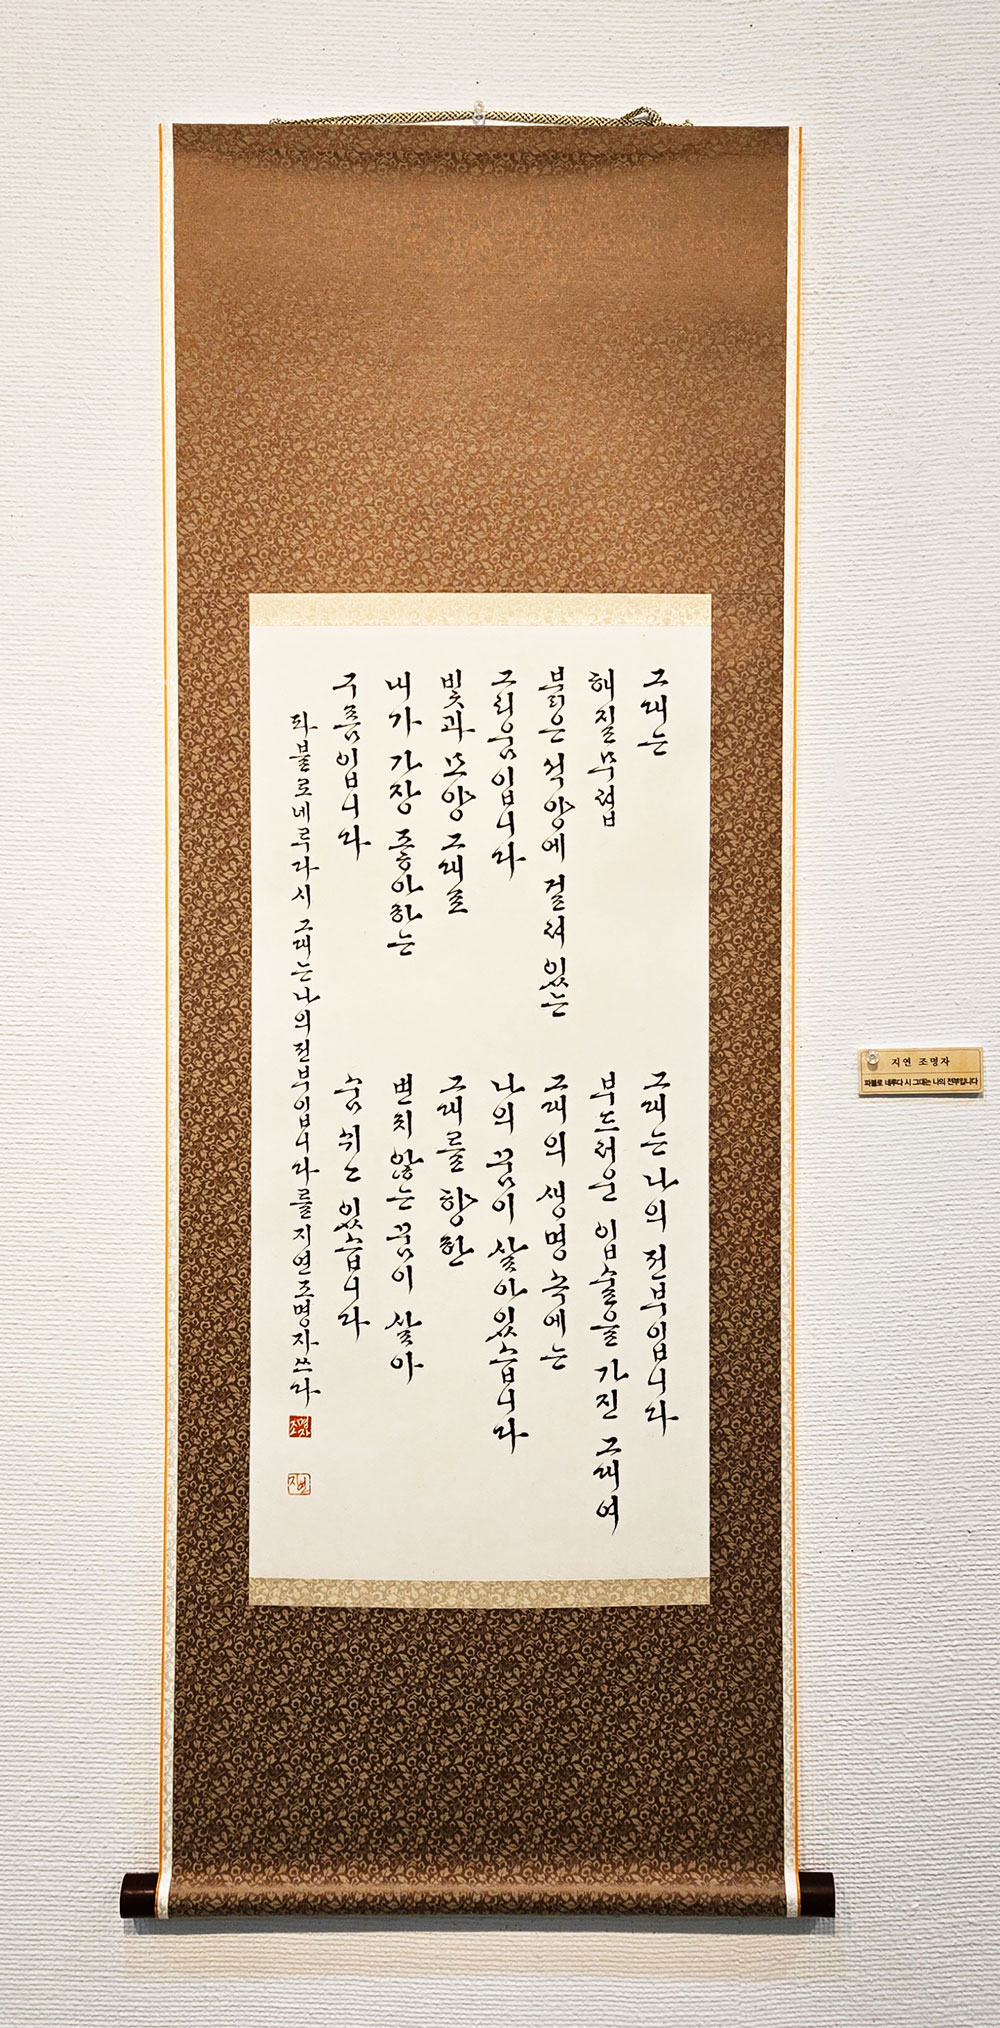 그대는
해질 무렵
붉은 석양에 걸려 있는
그리움입니다
빛과 모양 그대로
내가 가장 좋아하는
구름입니다
그대는 나의 전부입니다
부드러운 입술을 가진 그대여
그대의 생명 속에는
나의 꿈이 살아있습니다
그대를 향한
변치 않는 꿈이 살아
숨 쉬고 있습니다
파블로네루다시 그대는나의전부입니다를지연조명자쓰다
조명자
지연
지연 조명자
파블로 네루다 시 그대는 나의 전부입니다